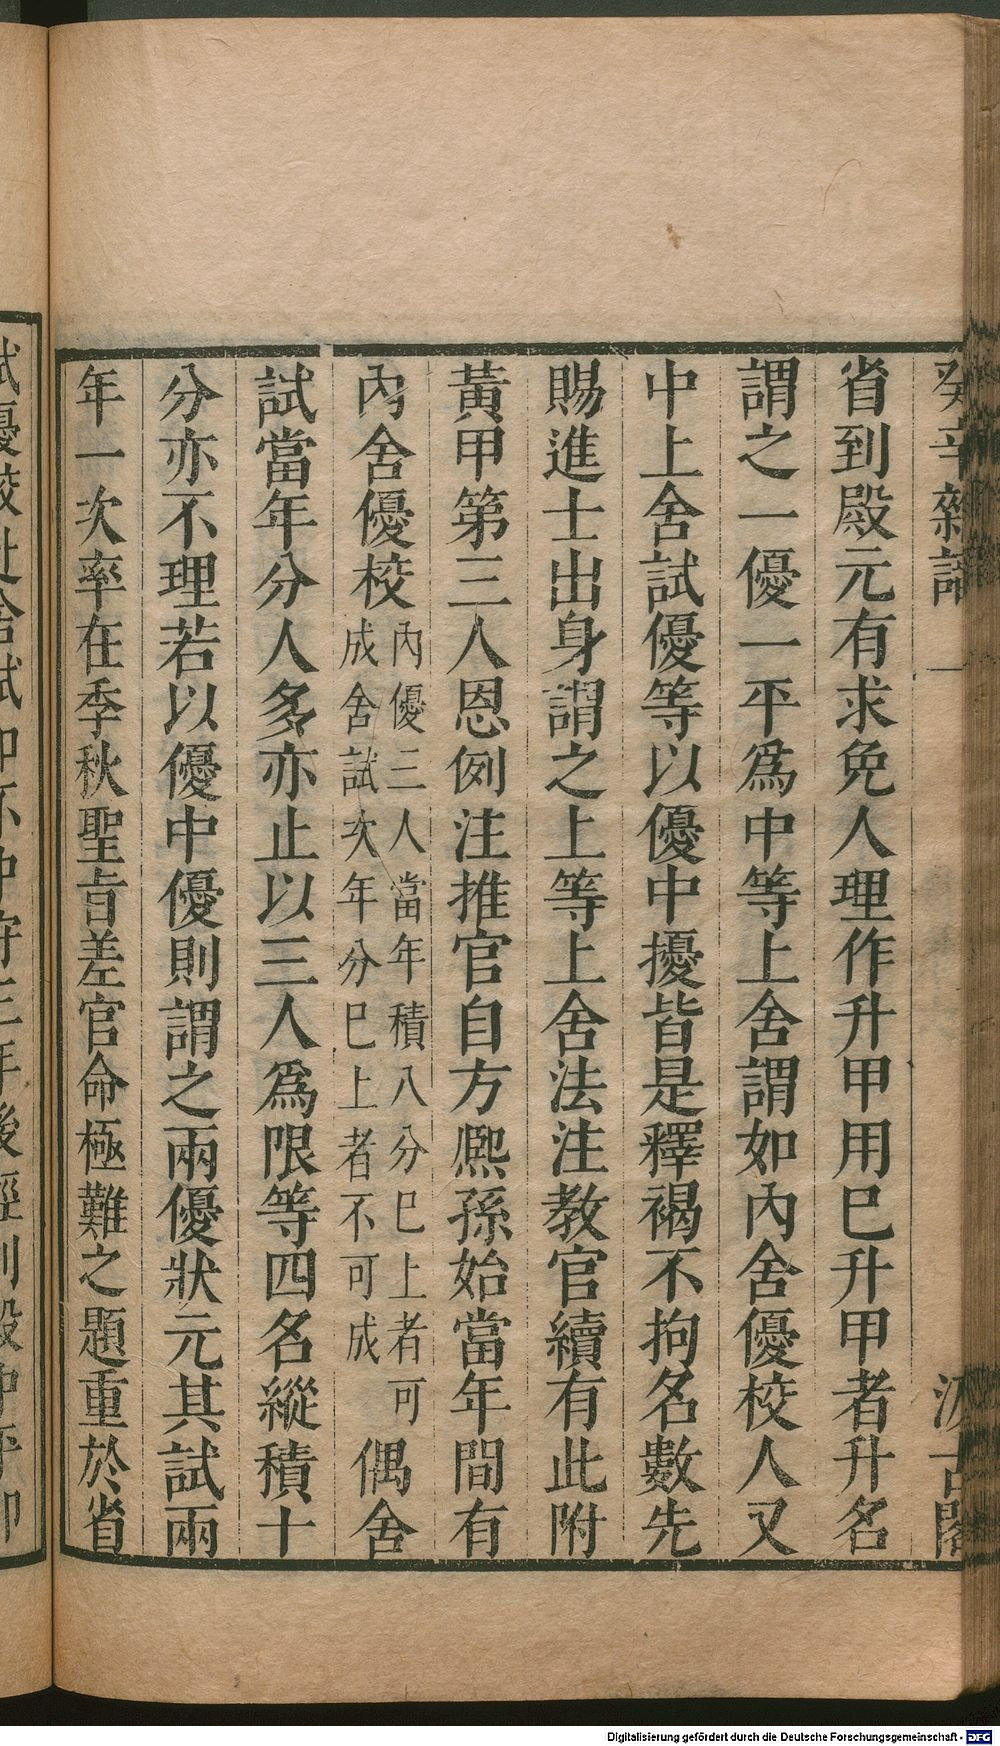 癸辛雜識 一 汲古閣
省到殿元有求免人理作升甲用巳升甲者升名
謂之一優一平爲中等上舍謂如內舍優校人又
中上舍試優等以優中擾皆是釋褐不拘名數先
賜進士出身謂之上等上舍法注教官續有此附
黃甲第三人恩例注推官自方熈孫始當年間有
內舍優校內優三人當年積八分巳上者可
成舍試次年分巳上者不可成偶舍
試當年分人多亦止以三人爲限等四名縱積十
分亦不理若以優中優則謂之兩優狀元其試兩
年一次率在季秋聖旨差官命極難之題重於省
Digitalisierung gefördert durch die Deutsche Forschungsgemeinschaft - DFG